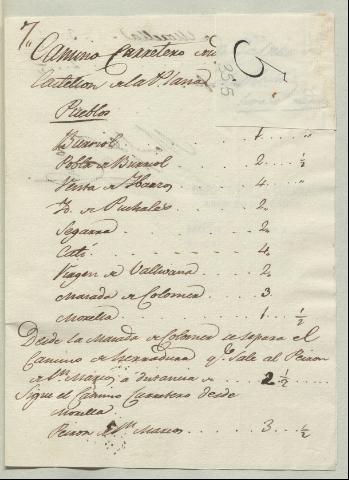 7
5
25-5
Camino Carretero
Castellon de la Plana
Pueblos
Burriol . . . 1 . "
Pobla de Burriol . . . 2 . ½
Venta de . . . 4 . . . "
de Puchales . . . 2 "
Segarra . . . 2 "
Catí . . . 4 "
Virgen de Vallivana . . . 2 "
Masada de Colomer . . . 3
Morella . . . 1 . ½
Desde la Masada de Colomer se separa el
Camino de herradura qe. Sale al Peiron
de Sn. Marcos a distancia de . . . 2 ½ . . .
Sigue el Camino Carretero desde
Morella
Peiron de Sn. Marcos . . . 3 . . ½